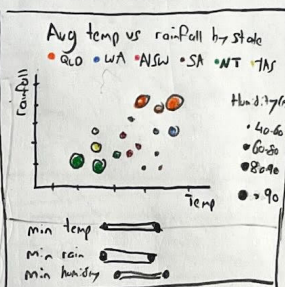 Avg temp vs rainfall by state
QLD WA NSW SA NT TAS
rainfall
Humidity
40-60
60-80
80-90
> 90
Temp
min temp
min rain
min humidity